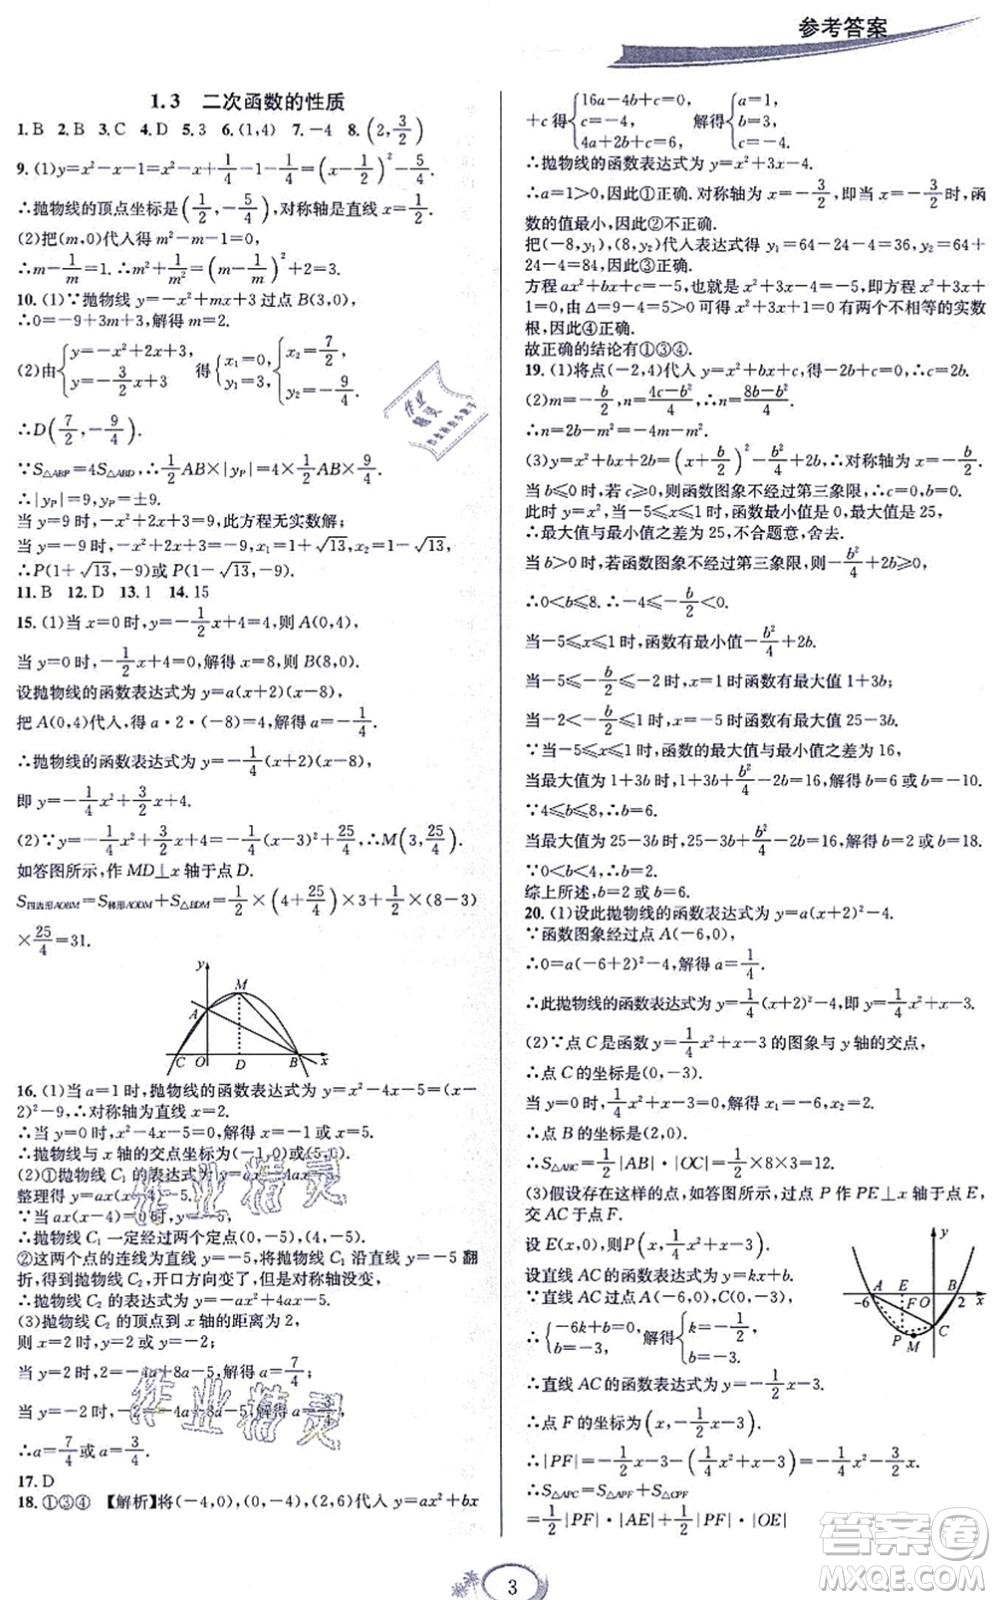 参考答案
1.3 二次函数的性质
1.B 2.B 3.C 4.D 5.3 6.(1,4) 7.-4 8.(2,3/2)
9.(1)y=x²-x-1=x²-x+1/4-1-1/4=(x-1/2)²-5/4.
∴抛物线的顶点坐标是(1/2,-5/4),对称轴是直线x=1/2.
(2)把(m,0)代入得m²-m-1=0,
∴m-1/m=1.∴m²+1/m²=(m-1/m)²+2=3.
10.(1)∵抛物线y=-x²+mx+3过点B(3,0),
∴0=-9+3m+3,解得m=2.
(2)由{y=-x²+2x+3, y=-3/2x+3 得{x₁=0, y₁=3, {x₂=7/2, y₂=-9/4.
∴D(7/2,-9/4).
∵S△ABP=4S△ABD,∴1/2AB×|yP|=4×1/2AB×9/4.
∴|yP|=9,yP=±9.
当y=9时,-x²+2x+3=9,此方程无实数解;
当y=-9时,-x²+2x+3=-9,x₁=1+√13,x₂=1-√13,
∴P(1+√13,-9)或P(1-√13,-9).
11.B 12.D 13.1 14.15
15.(1)当x=0时,y=-1/2x+4=4,则A(0,4),
当y=0时,-1/2x+4=0,解得x=8,则B(8,0).
设抛物线的函数表达式为y=a(x+2)(x-8),
把A(0,4)代入,得a·2·(-8)=4,解得a=-1/4.
∴抛物线的函数表达式为y=-1/4(x+2)(x-8),
即y=-1/4x²+3/2x+4.
(2)∵y=-1/4x²+3/2x+4=-1/4(x-3)²+25/4,∴M(3,25/4).
如答图所示,作MD⊥x轴于点D.
S四边形AOBM=S梯形AODM+S△BDM=1/2×(4+25/4)×3+1/2×(8-3)
×25/4=31.
y
M
A
C O D B x
16.(1)当a=1时,抛物线的函数表达式为y=x²-4x-5=(x-
2)²-9,∴对称轴为直线x=2.
∴当y=0时,x²-4x-5=0,解得x=-1或x=5.
∴抛物线与x轴的交点坐标为(-1,0)或(5,0).
(2)①抛物线C₁的表达式为y=ax²-4ax-5,
整理得y=ax(x-4)-5.
∵当ax(x-4)=0时,y=-5,
∴抛物线C₁一定经过两个定点(0,-5),(4,-5).
②这两个点的连线为直线y=-5,将抛物线C₁沿直线y=-5翻
折,得到抛物线C₂,开口方向变了,但是对称轴没变,
∴抛物线C₂的表达式为y=-ax²+4ax-5.
(3)抛物线C₂的顶点到x轴的距离为2,
则x=2时,y=2或y=-2;
当y=2时,2=-4a+8a-5,解得a=7/4;
当y=-2时,-2=-4a+8a-5,解得a=3/4.
∴a=7/4或a=3/4.
17.D
18.①③④ 【解析】将(-4,0),(0,-4),(2,6)代入y=ax²+bx
+c得{16a-4b+c=0, c=-4, 4a+2b+c=6, 解得{a=1, b=3, c=-4.
∴抛物线的函数表达式为y=x²+3x-4.
∴a=1>0,因此①正确.对称轴为x=-3/2,即当x=-3/2时,函
数的值最小,因此②不正确.
把(-8,y₁),(8,y₂)代入表达式得y₁=64-24-4=36,y₂=64+
24-4=84,因此③正确.
方程ax²+bx+c=-5,也就是x²+3x-4=-5,即方程x²+3x+
1=0,由Δ=9-4=5>0可得x²+3x+1=0有两个不相等的实数
根,因此④正确.
故正确的结论有①③④.
19.(1)将点(-2,4)代入y=x²+bx+c,得-2b+c=0,∴c=2b.
(2)m=-b/2,n=(4c-b²)/4,∴n=(8b-b²)/4.
∴n=2b-m²=-m²-4m.
(3)y=x²+bx+2b=(x+b/2)²-b²/4+2b,∴对称轴为x=-b/2.
当b≤0时,若c≥0,则函数图象不经过第三象限,∴c=0.
此时y=x²,当-5≤x≤1时,函数最小值是0,最大值是25,
∴最大值与最小值之差为25,不合题意,舍去.
当b>0时,若函数图象不经过第三象限,则-b²/4+2b≥0,
∴0<b≤8.∴-4≤-b/2<0.
当-5≤x≤1时,函数有最小值-b²/4+2b,
当-5≤-b/2≤-2时,x=1时函数有最大值1+3b,
当-2<-b/2≤1时,x=-5时函数有最大值25-3b.
∵当-5≤x≤1时,函数的最大值与最小值之差为16,
当最大值为1+3b时,1+3b+b²/4-2b=16,解得b=6或b=-10.
∵4≤b≤8,∴b=6.
当最大值为25-3b时,25-3b+b²/4-2b=16,解得b=2或b=18.
∵0<b<4,∴b=2.
综上所述,b=2或b=6.
20.(1)设此抛物线的函数表达式为y=a(x+2)²-4.
∵函数图象经过点A(-6,0),
∴0=a(-6+2)²-4,解得a=1/4.
∴此抛物线的函数表达式为y=1/4(x+2)²-4,即y=1/4x²+x-3.
(2)∵点C是函数y=1/4x²+x-3的图象与y轴的交点,
∴点C的坐标是(0,-3).
当y=0时,1/4x²+x-3=0,解得x₁=-6,x₂=2.
∴点B的坐标是(2,0).
∴S△ABC=1/2|AB|·|OC|=1/2×8×3=12.
(3)假设存在这样的点,如答图所示,过点P作PE⊥x轴于点E,
交AC于点F.
设E(x,0),则P(x,1/4x²+x-3).
设直线AC的函数表达式为y=kx+b.
∵直线AC过点A(-6,0),C(0,-3),
∴{-6k+b=0, -3=b, 解得{k=-1/2, b=-3.
∴直线AC的函数表达式为y=-1/2x-3.
∴点F的坐标为(x,-1/2x-3).
∴|PF|=-1/2x-3-(1/4x²+x-3)=-1/4x²-3/2x.
∴S△APC=S△APF+S△CPF
=1/2|PF|·|AE|+1/2|PF|·|OE|
y
A E B
-6 F O 2 x
P M C
作业精灵
作业精灵
作业精灵
答案圈
MXQE.COM
3